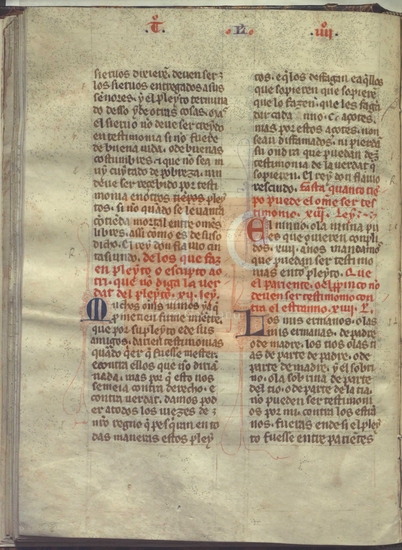 sieruos dixiere, deuen ser
los sieruos entregados a sus
sennores. y el pleyto termina
do desso y de otras cosas.
el sieruo non deue ser creydo
en testimonia si non fuere
de buena uida, o de buenas
costumbres. e que non sea m
uy cuytado de pobreza. nin
deue ser recebido por testi
monia en otros pley
tos. si non quando se leuanta
contienda mortal entre omnes
libres. assi como es de suso
dicho. El rey don flauio cin
tasundo. de los que fazen
en pleyto o escripto a
tri, que non diga la uer
dat del pleyto. xii. ley.
Muchos omnes uimos ya que
prometien firme miente,
que por su pleyto e de sus
amigos, darien testimonias
quando quier que fuesse mester.
e contra ellos que non dirian
nada. mas por que esto nos
semeia contra derecho. e
contra uerdat. damos pod
er a todos los iuezes de
nuestro regno que pesquieran en to
das maneras estos pley
tos. e que los desfagan e aquellos
que sopieren que sopiere
que lo fazen, que les fagan
dar cada uno. C. açotes.
mas por estos açotes, non
sean disfamados, ni pierdan
su ondra que puedan dezir
testimonia de la uerdat que
sopieren. El rey don flauio
rescindo. fasta quanto tiem
po puede el omne ser tes
timonio. xiii. Ley.
El ninno, o la ninna pu
es que ouieren compli
dos. xiiii. annos mandamos
que puedan ser testimo
nias en tod pleyto. Que
el pariente, o el propinco non
deuen ser testimonio con
tra el estranno. xiiii. L.
Los mis ermanos, o las
mis ermanas, de padre,
o de madre. los tios o las ti
as de parte de padre, o de
parte de madre, y el sobri
no, o la sobrina de parte
del tio, o de parte de la tia,
non pueden ser testimoni
os por mi. contra los estra
nnos. fueras ende si el pley
to fuesse entre parientes